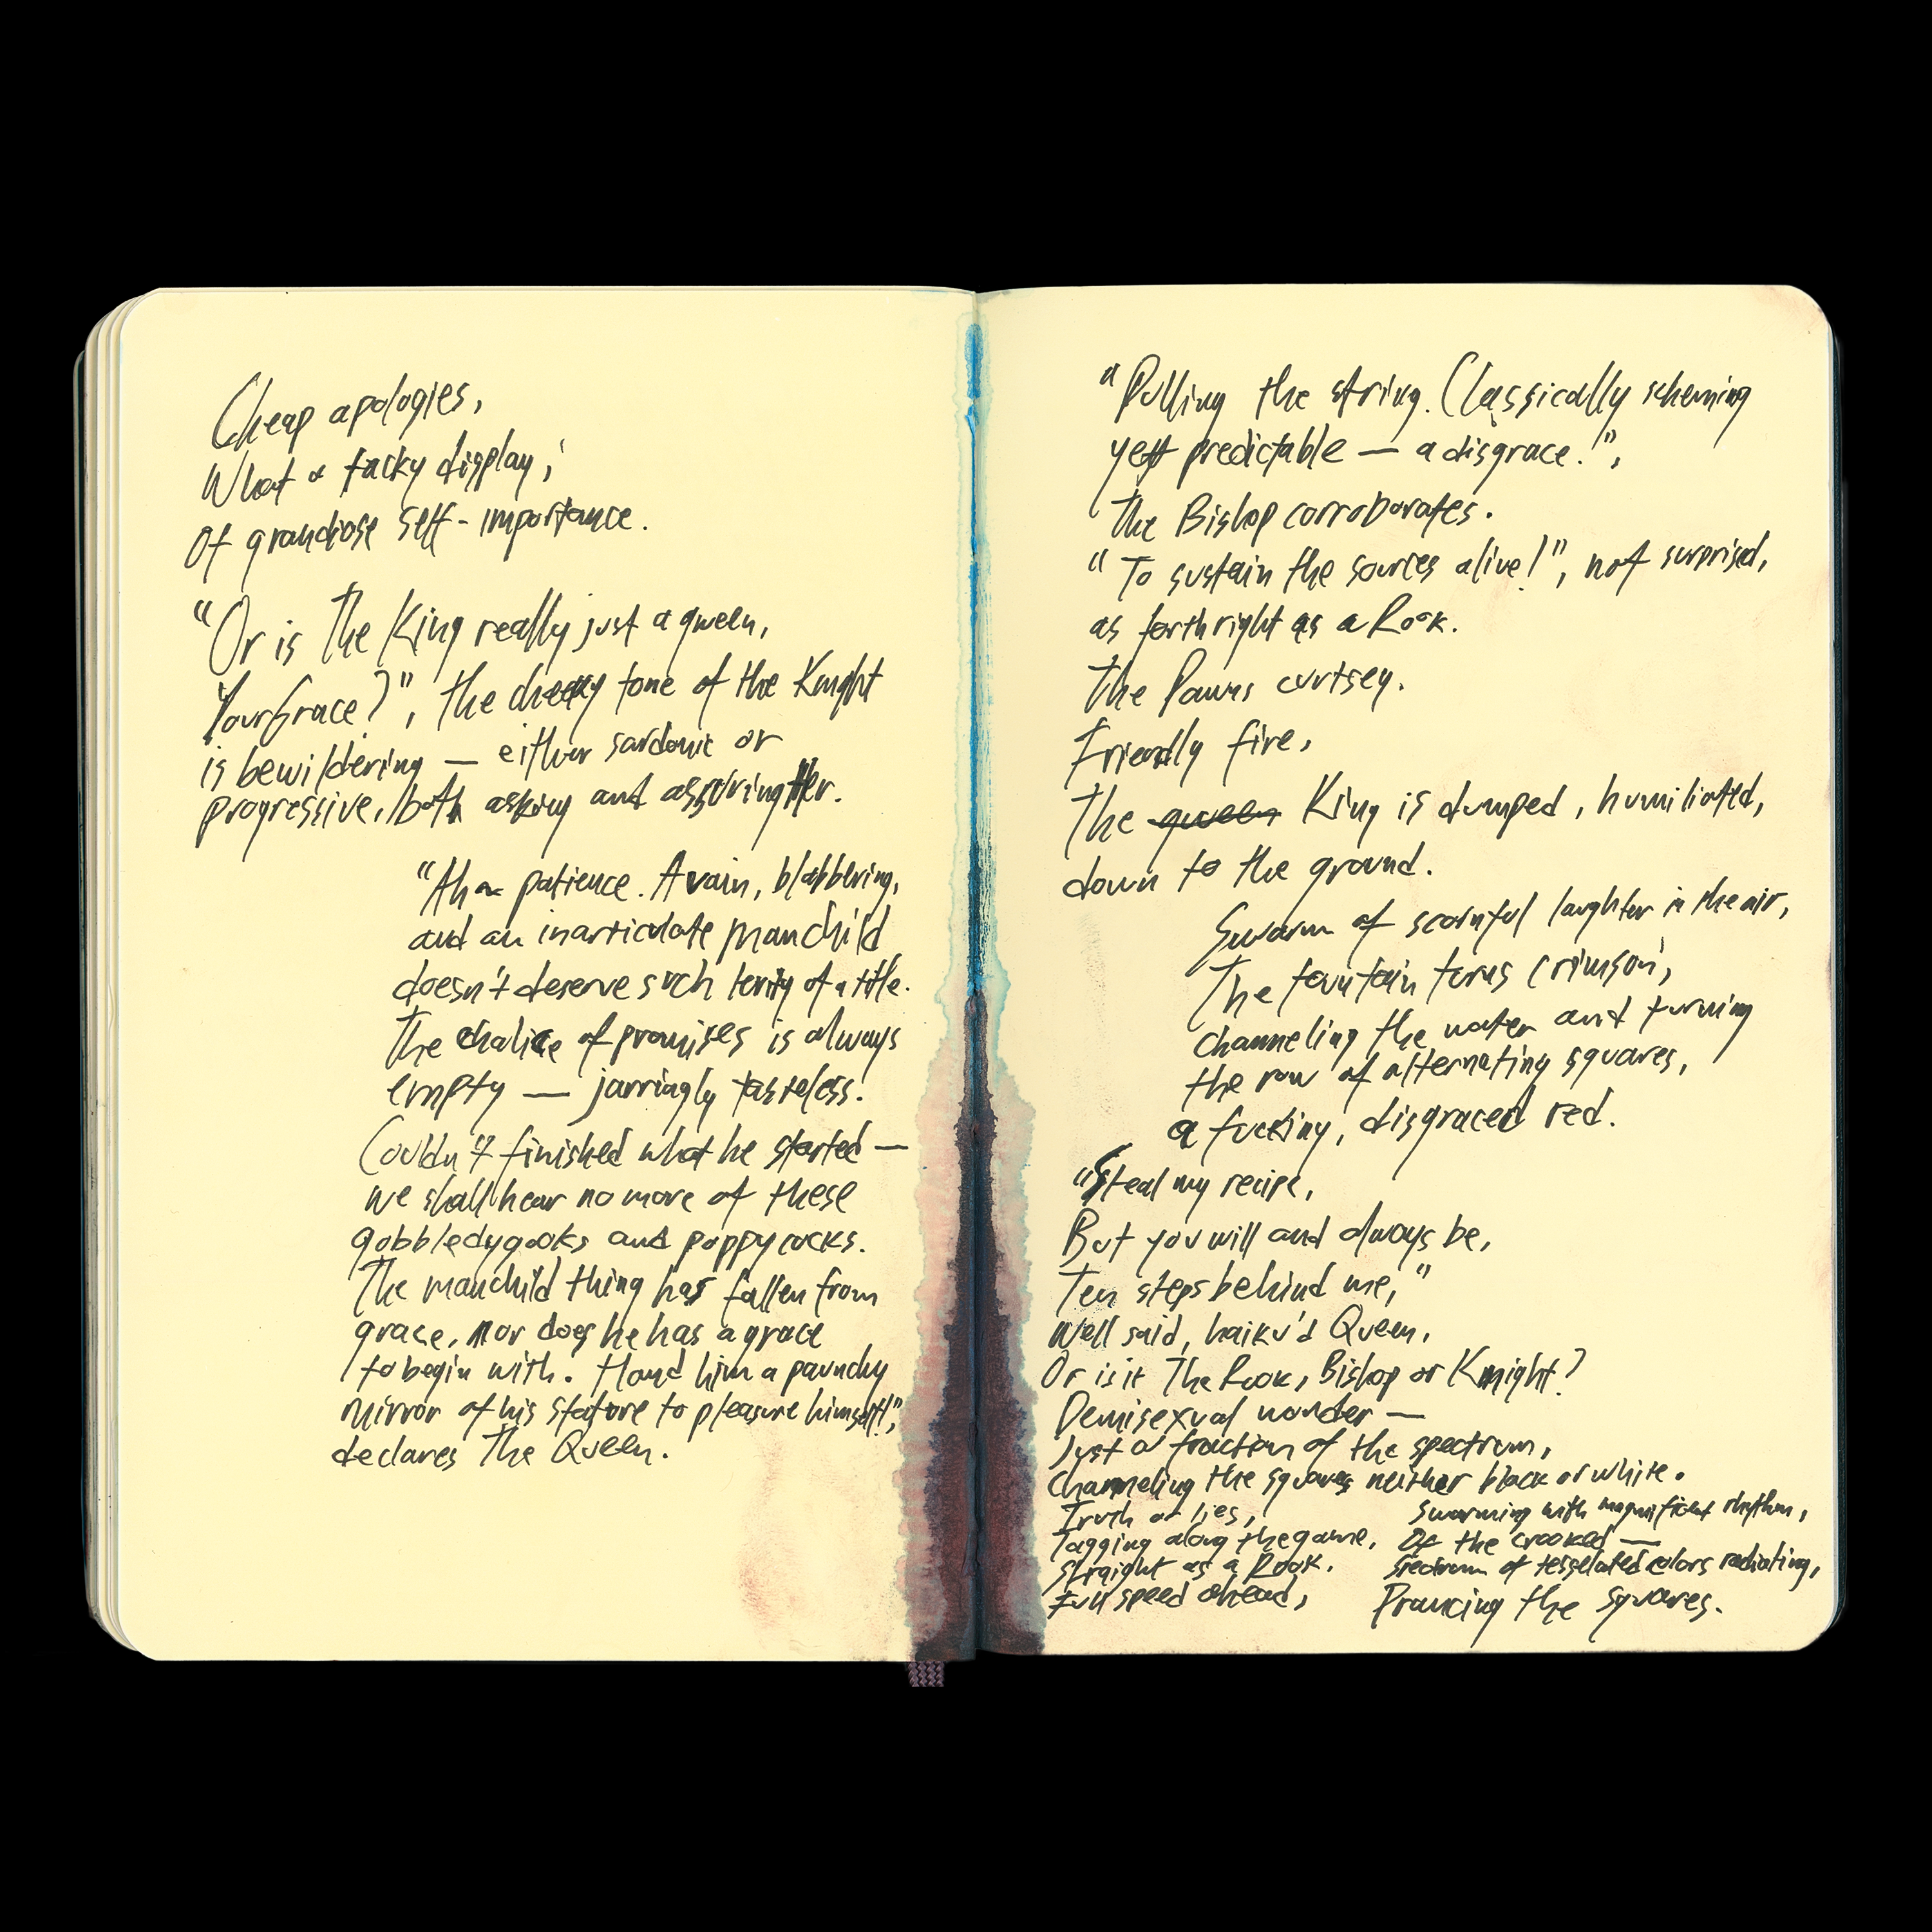 Cheap apologies,
What a tacky display;
Of grandiose self-importance.
"Or is The King really just a queen,
Your Grace?", the cheeky tone of the Knight
is bewildering — either sardonic or
progressive, both asking and assuring Her.
"Ah patience. A vain, blabbering,
and an inarticulate manchild
doesn't deserve such of a title.
The chalice of promises is always
empty — jarringly tasteless.
Couldn't finished what he started —
we shall hear no more of these
gobbledygooks and poppycocks.
The manchild thing has fallen from
grace, nor does he has a grace
to begin with. Hand him a paunchy
mirror of his stature to pleasure himself!",
declares The Queen.
"Pulling the string. Classically scheming
yet predictable — a disgrace!",
The Bishop corroborates.
"To sustain the sources alive!", not surprised,
as forthright as a Rook.
The Pawns curtsey.
Friendly fire,
The queen King is dumped, humiliated,
down to the ground.
Swarm of scornful laughter in the air,
The fountain turns crimson;
channeling the water and turning
the row of alternating squares,
a fucking, disgraced red.
"Steal my recipe,
But you will and always be,
Ten steps behind me,"
Well said, haiku'd Queen,
Or is it The Rook, Bishop or Knight?
Demisexual wonder —
Just a fraction of the spectrum,
Channeling the squares neither black or white.
Truth or lies,
Tagging along the game,
Straight as a Rook.
Full speed ahead,
Swarming with magnificent rhythm,
Of the crooked —
Spectrum of tesselated colors radiating,
Prancing the squares.